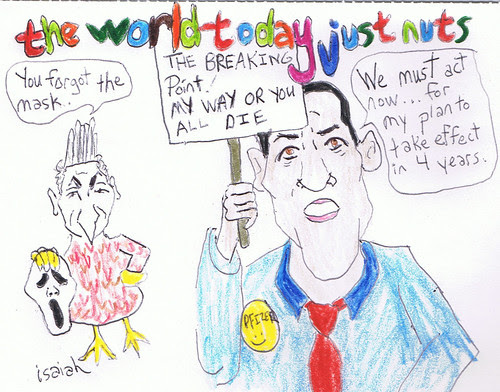 the world today just nuts
You forgot the
mask..
THE BREAKING
Point!
MY WAY OR YOU
ALL DIE
We must act
now...for
my plan to
take effect
in 4 years.
PFIZER
isaiah